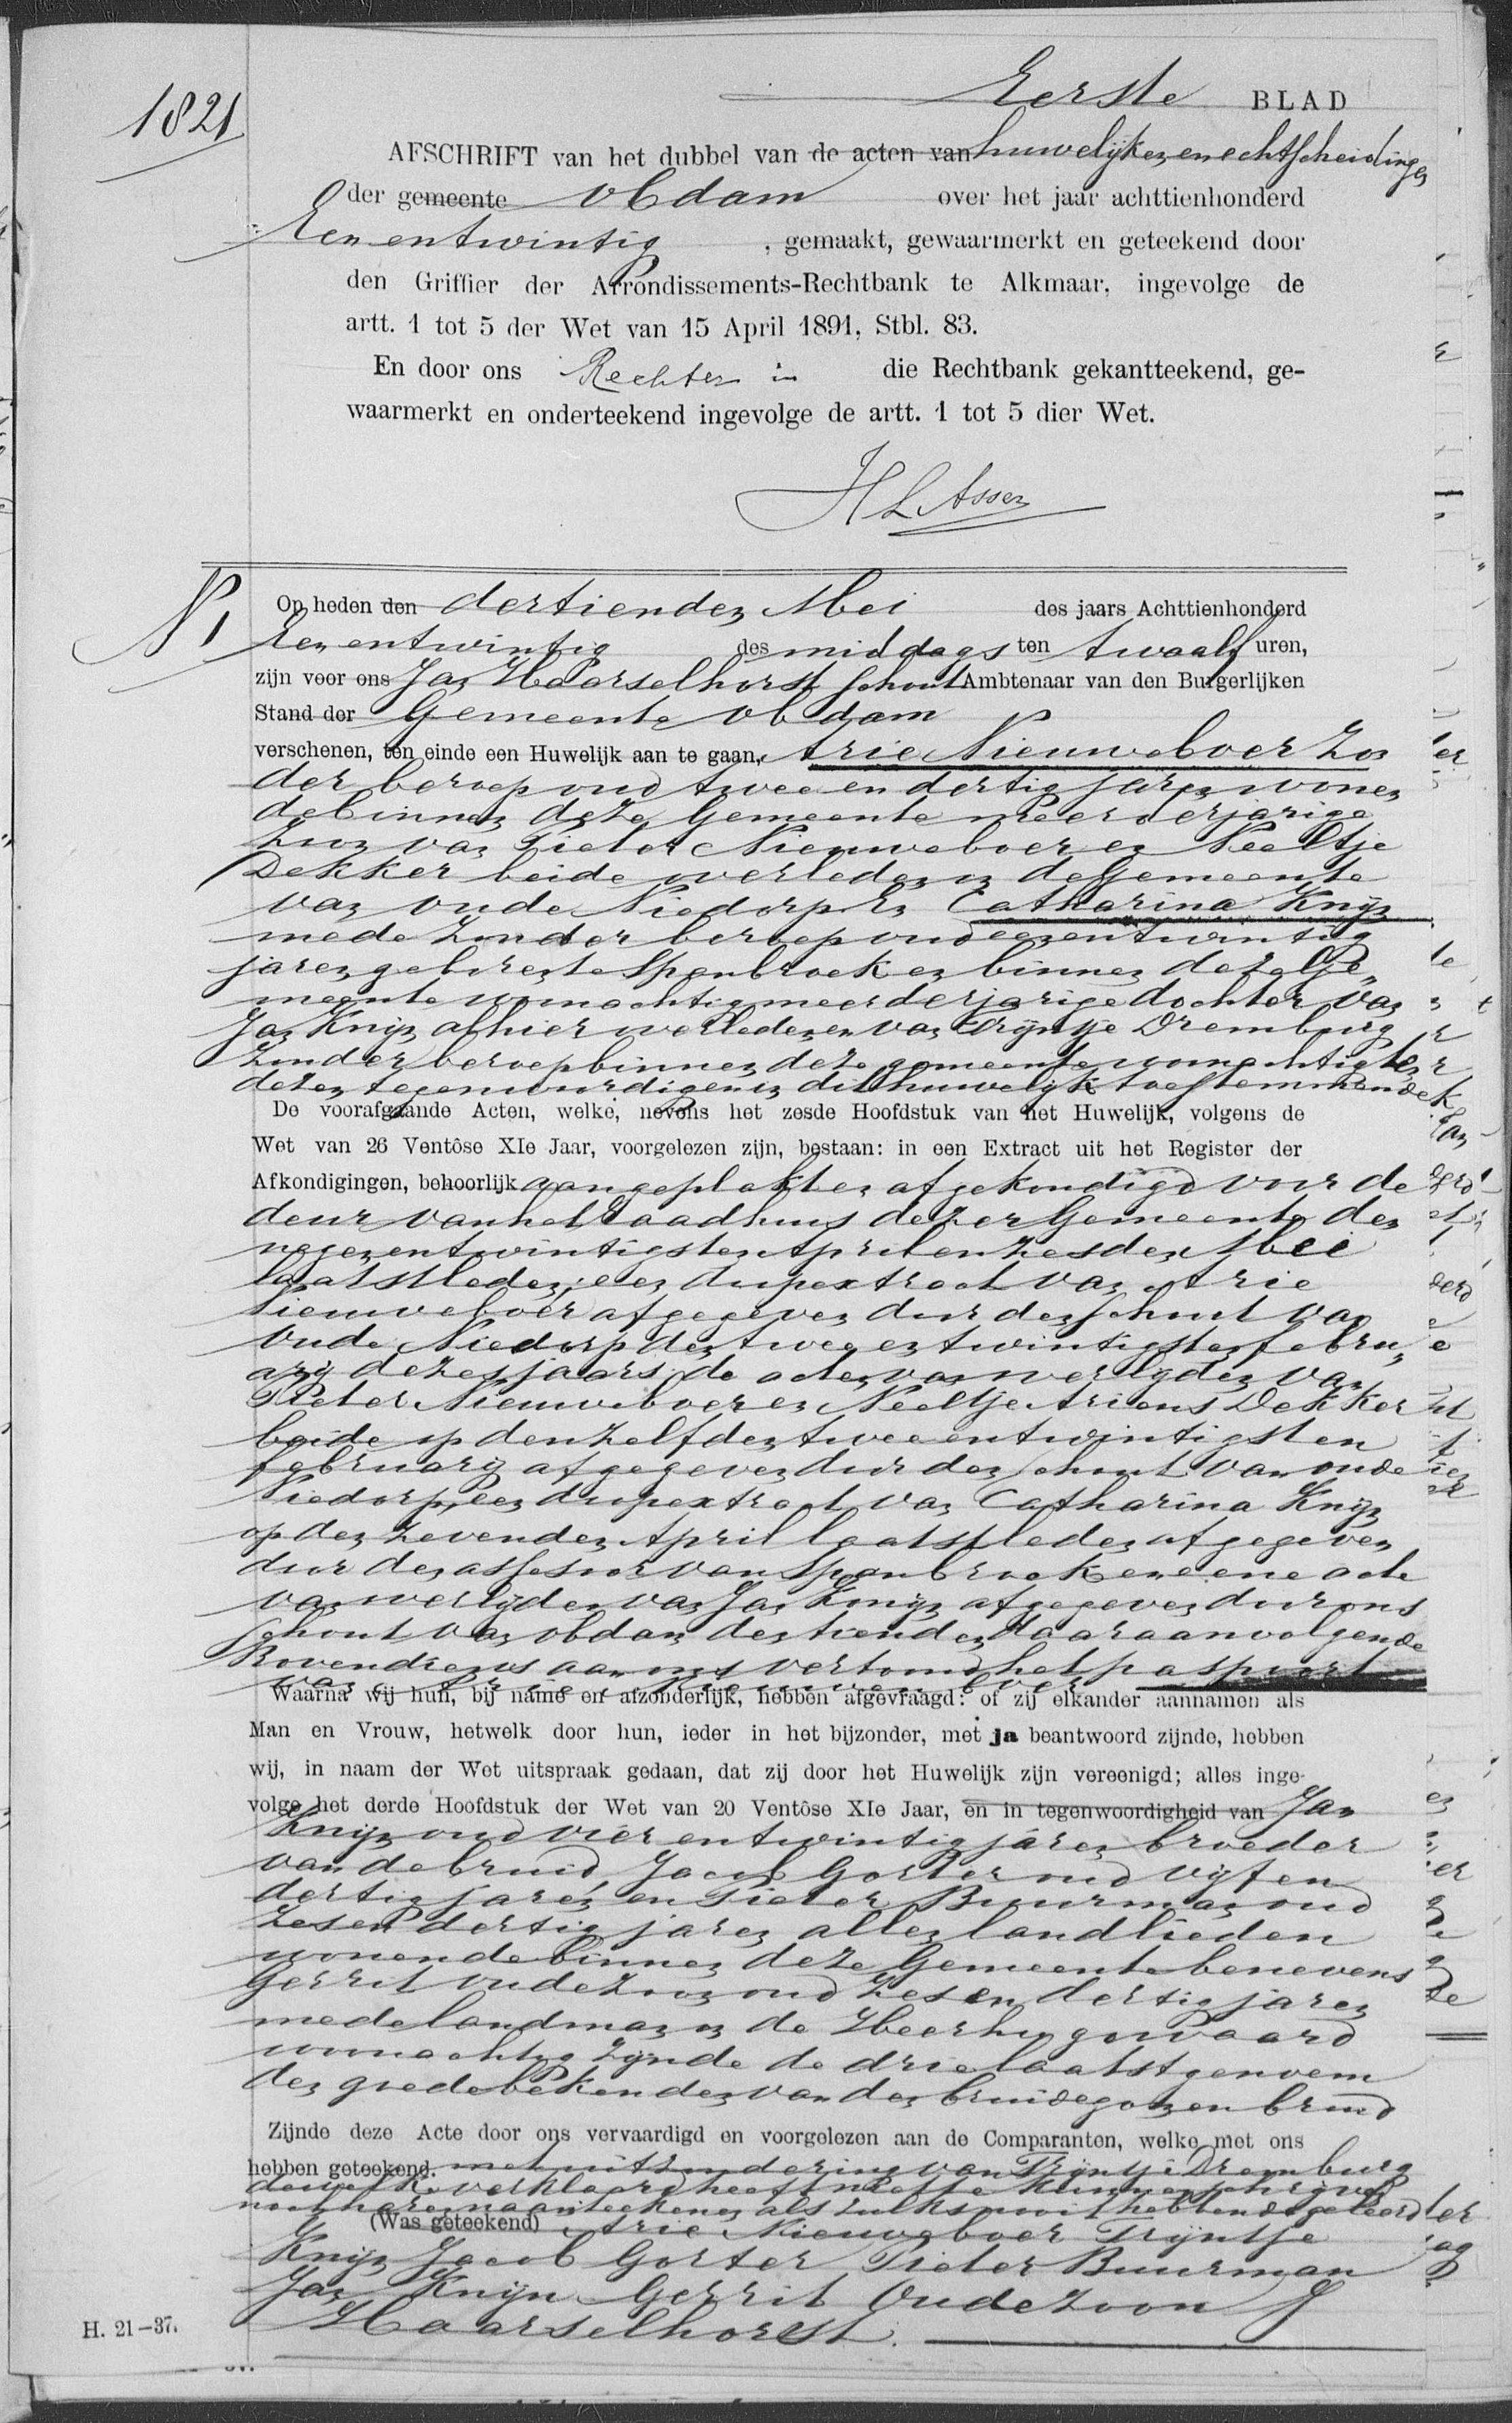 1821
Eerste BLAD
AFSCHRIFT van het dubbel van de acten van huwelijken en echtscheidingen
der gemeente Obdam over het jaar achttienhonderd
Een en twintig, gemaakt, gewaarmerkt en geteekend door
den Griffier der Arrondissements-Rechtbank te Alkmaar, ingevolge de
artt. 1 tot 5 der Wet van 15 April 1891, Stbl. 83.
En door ons Rechter in die Rechtbank gekantteekend, ge-
waarmerkt en onderteekend ingevolge de artt. 1 tot 5 dier Wet.
H L Asser
N 1
Op heden den dertienden Mei des jaars Achttienhonderd
Een en twintig des middags ten twaalf uren,
zijn voor ons Jan Haarselhorst schout Ambtenaar van den Burgerlijken
Stand der Gemeente Obdam
verschenen, ten einde een Huwelijk aan te gaan, Arie Nieuweboer Zon
der beroep oud twee en dertig jaren wonen
de binnen deze Gemeente meerderjarige
Zoon van Pieter Nieuweboer en Neeltje
Dekker beide overleden in de Gemeente
van oude Niedorp En Catharina Knijn
mede zonder beroep oud een en twintig
jaren geboren te Spanbroek en binnen dezelfge„
meente woonachtig meerderjarige dochter van
Jan Knijn alhier overleden en van Trijntje Dremburg
Zonder beroep binnen deze gemeente woonachtig ten
dezen tegenwoordig en in dit huwelijk toestemmende
De voorafgaande Acten, welke, nevens het zesde Hoofdstuk van het Huwelijk, volgens de
Wet van 26 Ventôse XIe Jaar, voorgelezen zijn, bestaan: in een Extract uit het Register der
Afkondigingen, behoorlijk aangeplakt en afgekondigd voor de
deur van het Raadhuis dezer Gemeente den
negenentwintigsten April en zesden Mei
laatstleden; een doopextract van Arie
Nieuweboer afgegeven door den schout van
Oude Niedorp den twee en twintigsten febru„
arij dezes jaars, de acten van overlyden van
Pieter Nieuweboer en Neeltje Ariens Dekker
beide op denzelfden twee en twintigsten
februarij afgegeven door den schout van oude
Niedorp, een doopextract van Catharina Knijn
op den zevenden April laatstleden afgegeven
door den assessor van Spanbroek en eene acte
van overlijden van Jan Knijn afgegeven door ons
schout van obdam den tienden daaraanvolgende
Bovendien is aan ons vertoond het paspoort
van Arie Nieuweboer
Waarna wij hun, bij name en afzonderlijk, hebben afgevraagd: of zij elkander aannamen als
Man en Vrouw, hetwelk door hun, ieder in het bijzonder, met ja beantwoord zijnde, hebben
wij, in naam der Wet uitspraak gedaan, dat zij door het Huwelijk zijn vereenigd; alles inge-
volge het derde Hoofdstuk der Wet van 20 Ventôse XIe Jaar, en in tegenwoordigheid van Jan
Knijn oud vier en twintig jaren broeder
van de bruid, Jacob Gorter oud vijf en
dertig jaren, en Pieter Buurman oud
zes en dertig jaren allen landlieden
wonende binnen deze Gemeente benevens
Gerrit Oudezoon oud zes en dertig jaren
mede landman in de Heerhugowaard
woonachtig zijnde de drie laatstgenoem
den goede bekenden van den bruidegom en bruid
Zijnde deze Acte door ons vervaardigd en voorgelezen aan de Comparanten, welke met ons
hebben geteekend. met uitzondering van Trijntje Dremburg
dewelke verklaard heeft niet te kunnen schrijven
noch haren naam teekenen als zulks nooit hebbende geleerd
(Was geteekend) Arie Nieuweboer Trijntje
Knijn Jacob Gorter Pieter Buurman
Jan Knijn Gerrit Oudezoon J
Haarselhorst.
H. 21-37.